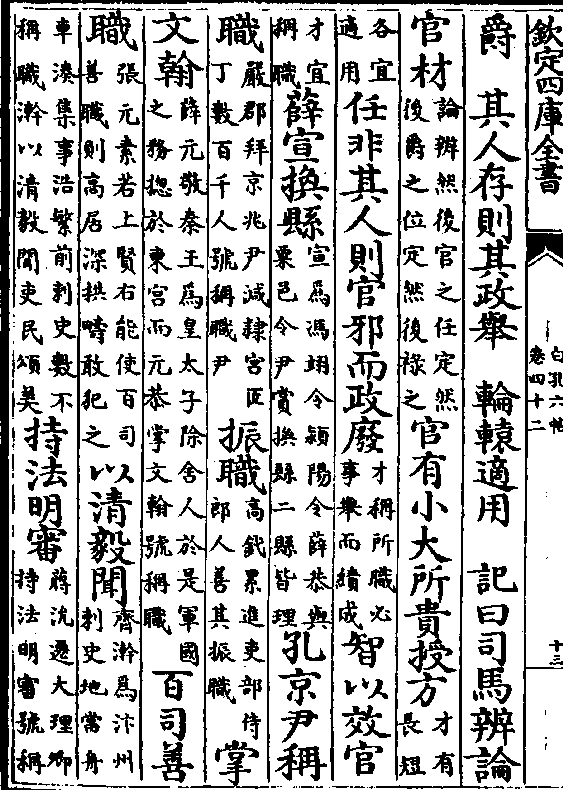 欽定四庫全書
白孔六帖
卷四十二
十三
爵　其人存則其政舉　輪轅適用　記曰司馬辨論
官材論辨然後官之任定然後爵之位定然後祿之官有小大所貴授方才有長短
各宜適用任非其人則官邪而政廢才稱所職必事舉而績成智以效官
才宜稱職薛宣換縣宣為馮翊令頻陽令薛恭與粟邑令尹賞換縣二縣皆理孔京尹稱
職嚴郡拜京兆尹減隸宮匠丁數百千人號稱職尹振職高釴累進吏部侍郎人善其振職掌
文翰薛元敬秦王為皇太子除舍人於是軍國之務揔於東宮而元恭掌文翰號稱職百司善
職張元素若上賢右能使百司善職則高居深拱疇敢犯之以清毅聞齊澣為汴州刺史地當舟
車湊集事浩繁前刺史數不稱職澣以清毅聞吏民頌美持法明審蔣沇遷大理卿持法明審號稱